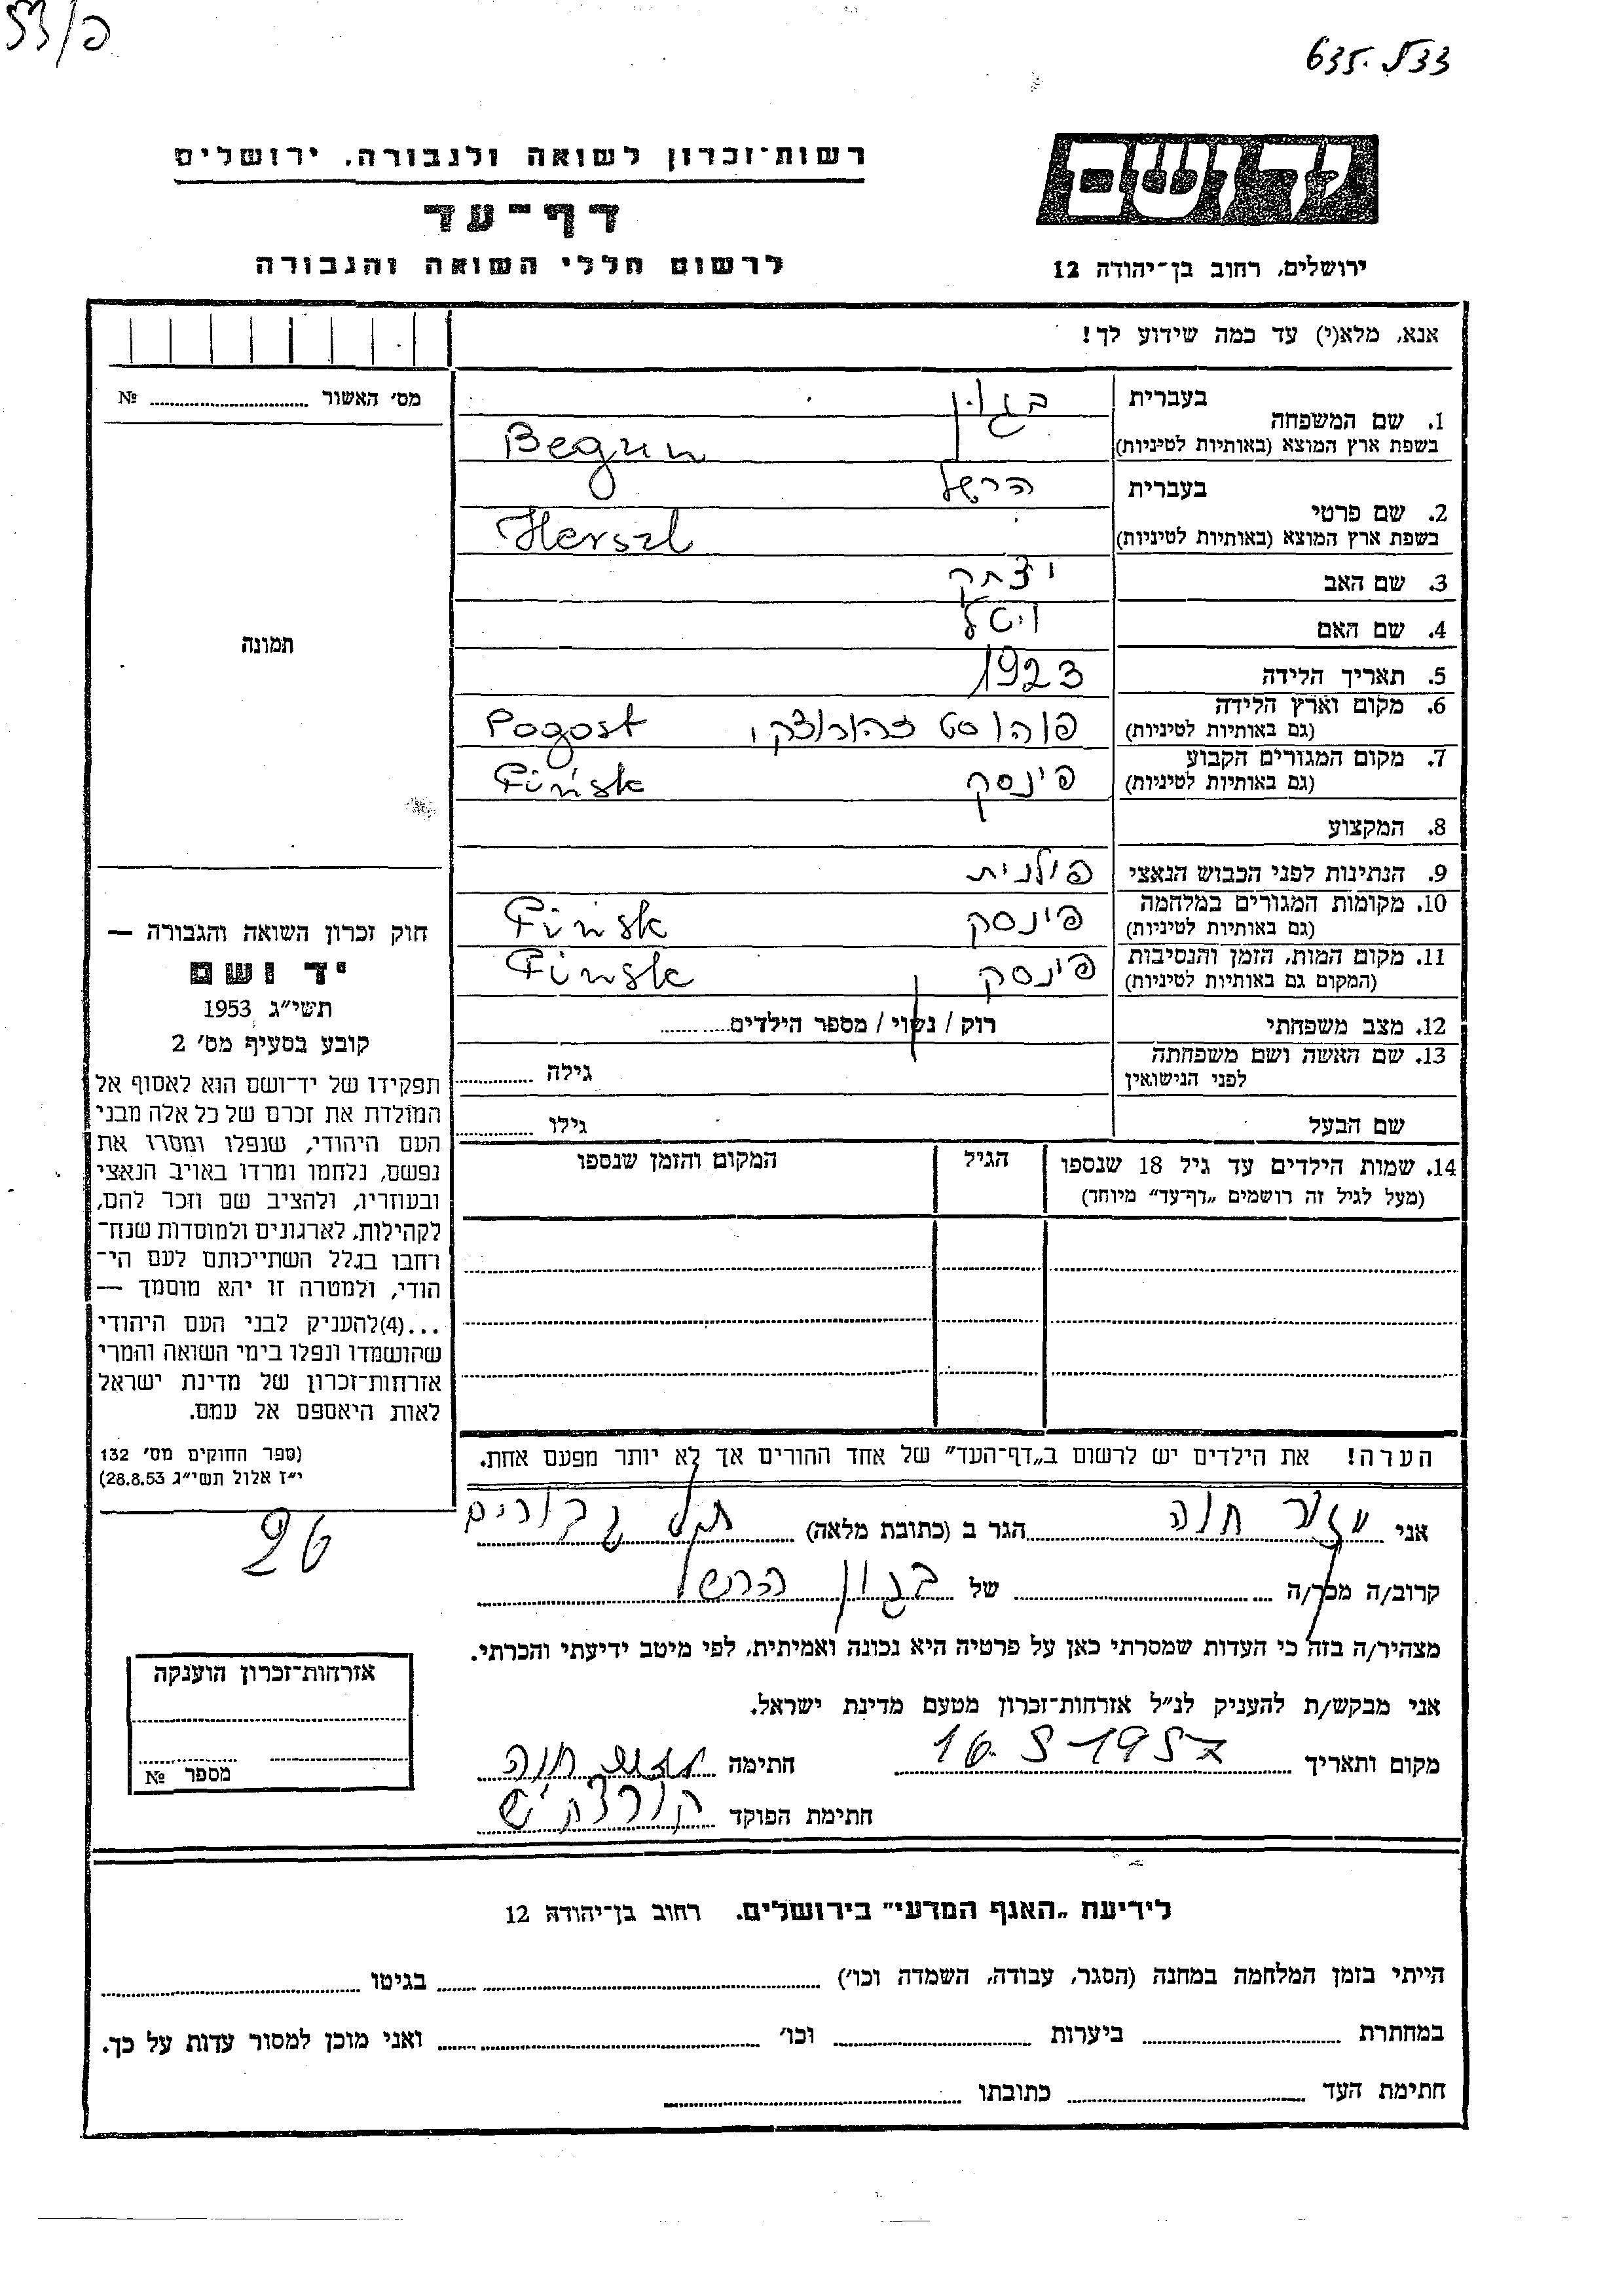 פ/53
635.533
ידושם
רשות־זכרון לשואה ולגבורה, ירושלים
דף־עד
לרשום חללי השואה והגבורה
ירושלים, רחוב בן־יהודה 12
אנא, מלא(י) עד כמה שידוע לך!
מס׳ האשור № 
1. שם המשפחה
בעברית בגון
בשפת ארץ המוצא (באותיות לטיניות) Begun
2. שם פרטי
בעברית הרשל
בשפת ארץ המוצא (באותיות לטיניות) Herszl
3. שם האב יצחק
4. שם האם ויטל
5. תאריך הלידה 1923
6. מקום וארץ הלידה (גם באותיות לטיניות) פוהוסט זהורודצקי Pogost
7. מקום המגורים הקבוע (גם באותיות לטיניות) פינסק Pińsk
8. המקצוע
9. הנתינות לפני הכבוש הנאצי פולנית
10. מקומות המגורים במלחמה (גם באותיות לטיניות) פינסק Pińsk
11. מקום המות, הזמן והנסיבות (המקום גם באותיות לטיניות) פינסק Pińsk
12. מצב משפחתי רוק / נשוי / מספר הילדים
13. שם האשה ושם משפחתה לפני הנישואין גילה
שם הבעל גילו
14. שמות הילדים עד גיל 18 שנספו
(מעל לגיל זה רושמים „דף־עד״ מיוחד)
הגיל
המקום והזמן שנספו
תמונה
חוק זכרון השואה והגבורה —
יד ושם
תשי״ג 1953
קובע בסעיף מס׳ 2
תפקידו של יד־ושם הוא לאסוף אל
המולדת את זכרם של כל אלה מבני
העם היהודי, שנפלו ומסרו את
נפשם, נלחמו ומרדו באויב הנאצי
ובעוזריו, ולהציב שם וזכר להם,
לקהילות, לארגונים ולמוסדות שנח־
רחבו בגלל השתייכותם לעם הי־
הודי, ולמטרה זו יהא מוסמך —
...(4)להעניק לבני העם היהודי
שהושמדו ונפלו בימי השואה והמרי
אזרחות־זכרון של מדינת ישראל
לאות היאספם אל עמם.
(ספר החוקים מס׳ 132
י״ז אלול תשי״ג 28.8.53)
הערה! את הילדים יש לרשום ב„דף־העד״ של אחד ההורים אך לא יותר מפעם אחת.
אני חוה הגר ב (כתובת מלאה) גבורים
קרוב/ה מכר/ה של בגון הרשל
26
מצהיר/ה בזה כי העדות שמסרתי כאן על פרטיה היא נכונה ואמיתית, לפי מיטב ידיעתי והכרתי.
אני מבקש/ת להעניק לנ״ל אזרחות־זכרון מטעם מדינת ישראל.
מקום ותאריך 16.5-1957 חתימה חוה
חתימת הפוקד
אזרחות־זכרון הוענקה
מספר №
לידיעת „האגף המדעי״ בירושלים. רחוב בן־יהודה 12
הייתי בזמן המלחמה במחנה (הסגר, עבודה, השמדה וכו׳) בגיטו
במחתרת ביערות וכו׳ ואני מוכן למסור עדות על כך.
חתימת העד כתובתו